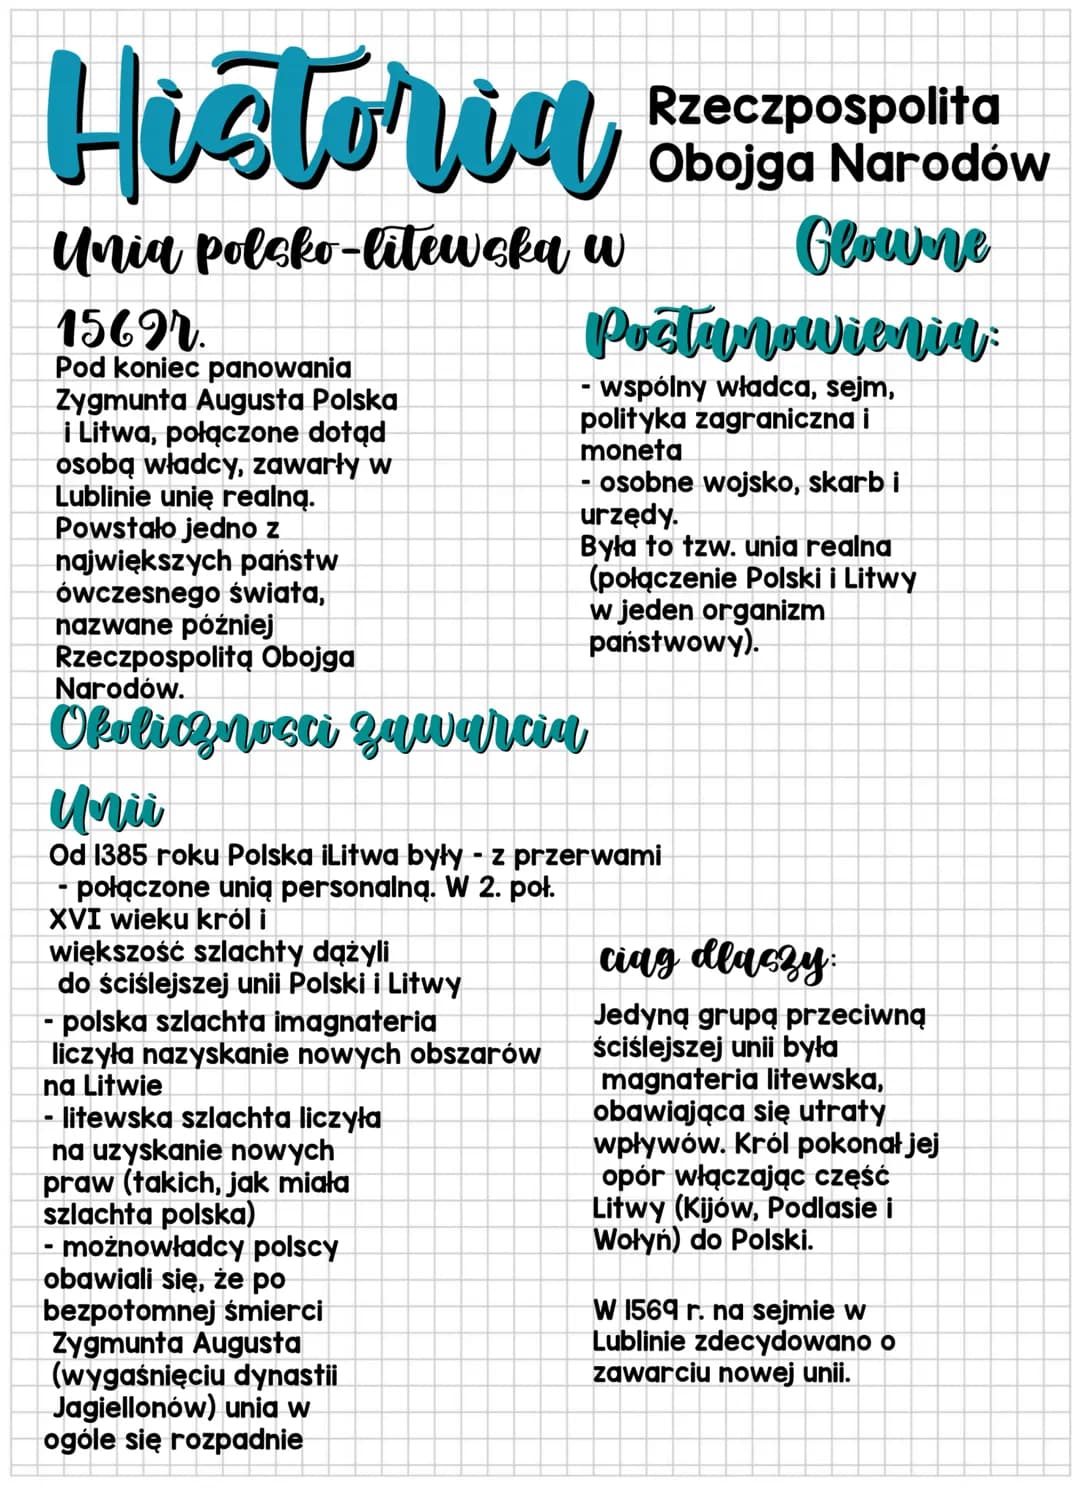 Historia
Rzeczpospolita
Obojga Narodów
Unia polsko-litewska w
1569r.
Pod koniec panowania
Zygmunta Augusta Polska
i Litwa, połączone dotąd
osobą władcy, zawarły w
Lublinie unię realną.
Powstało jedno z
największych państw
ówczesnego świata,
nazwane później
Rzeczpospolitą Obojga
Narodów.
Głowne
Postanowienia:
- wspólny władca, sejm,
polityka zagraniczna i
moneta
- osobne wojsko, skarb i
urzędy.
Była to tzw. unia realna
(połączenie Polski i Litwy
w jeden organizm
państwowy).
Okolicznosci zawarcia
Unii
Od 1385 roku Polska iLitwa były - z przerwami
- połączone unią personalną. W 2. poł.
XVI wieku król i
większość szlachty dążyli
do ściślejszej unii Polski i Litwy
- polska szlachta imagnateria
liczyła nazyskanie nowych obszarów
na Litwie
- litewska szlachta liczyła
na uzyskanie nowych
praw (takich, jak miała
szlachta polska)
- możnowładcy polscy
obawiali się, że po
bezpotomnej śmierci
Zygmunta Augusta
(wygaśnięciu dynastii
Jagiellonów) unia w
ogóle się rozpadnie
ciąg dlaszy:
Jedyną grupą przeciwną
ściślejszej unii była
magnateria litewska,
obawiająca się utraty
wpływów. Król pokonał jej
opór włączając część
Litwy (Kijów, Podlasie i
Wołyń) do Polski.
W 1569 r. na sejmie w
Lublinie zdecydowano o
zawarciu nowej unii.